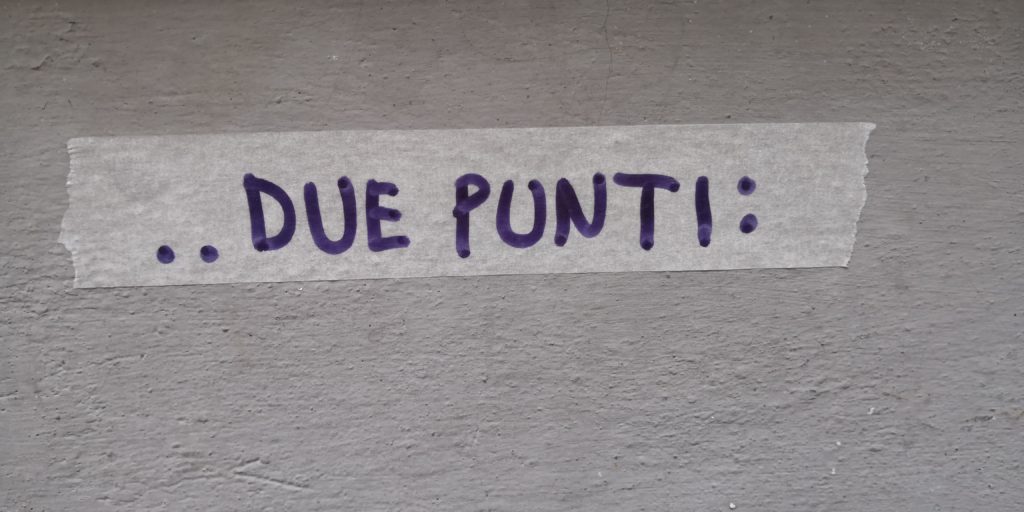 ..DUE PUNTI: